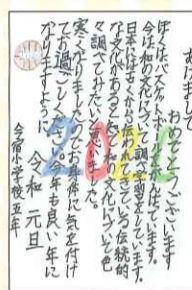 あけまして
おめでとうございます
ぼくはバスケットボールをがんばっています。
今は和の文化について調べ学習をやっています。
日本には古くから伝わってきている伝統的
な文化があることを知り和の文化について色
々調べてみたいと思いました。
寒くなりましたのでお身体に気を付け
てお過ごしください。今年も良い年に
なりますように
2026
令和 元旦
今宿小学校五年